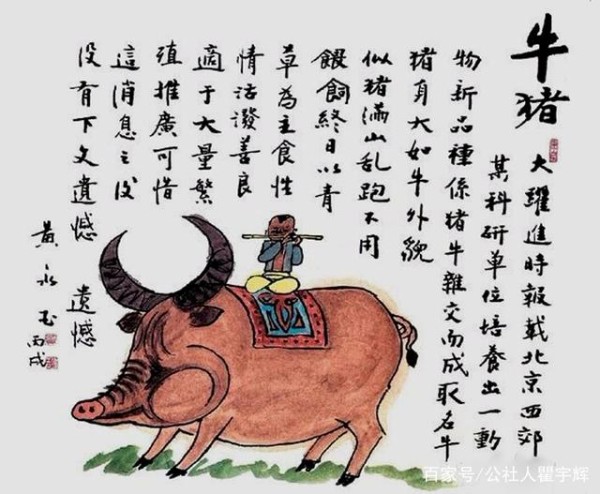 牛猪
大躍進時報載北京西郊
某科研单位培養出一動
物新品種係猪牛雜交而成取名牛
猪身大如牛外貌
似猪滿山乱跑不用
餵飼終日以青
草為主食性
情活潑善良
適于大量繁
殖推廣可惜
這消息之後
没有下文遺憾 遺憾
黄永玉 丙戌
百家号/公社人瞿宇辉